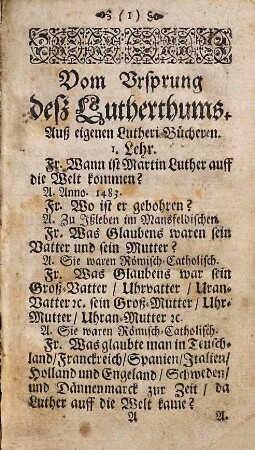 (1)
Vom Vrsprung
deß Lutherthums.
Auß eigenen Lutheri-Bücheren.
1. Lehr.
Fr. Wann ist Martin Luther auff
die Welt kommen?
A. Anno. 1483.
Fr. Wo ist er gebohren?
A. Zu Ißleben im Mansfeldischen.
Fr. Was Glaubens waren sein
Vatter und sein Mutter?
A. Sie waren Römisch-Catholisch.
Fr. Was Glaubens war sein
Groß-Vatter / Uhrvatter / Uran-
Vatter ꝛc. sein Groß-Mutter / Uhr-
Mutter / Uhran-Mutter ꝛc.
A. Sie waren Römisch-Catholisch.
Fr. Was glaubte man in Teusch-
land / Franckreich / Spanien / Italien /
Holland und Engeland / Schweden /
und Dännenmarck zur Zeit / da
Luther auff die Welt kame?
A A.